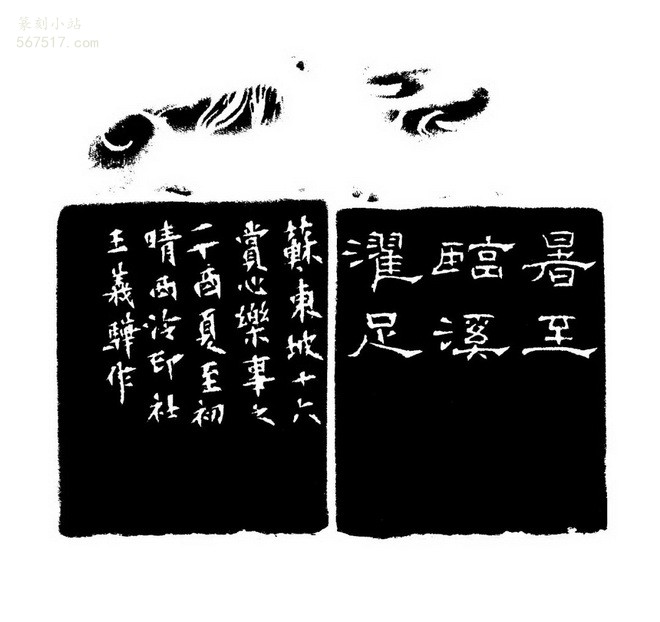 篆刻小站
567517.com
暑至
臨溪
濯足
蘇東坡十六
賞心樂事之
一丁酉夏至初
晴西泠印社
王義驊作